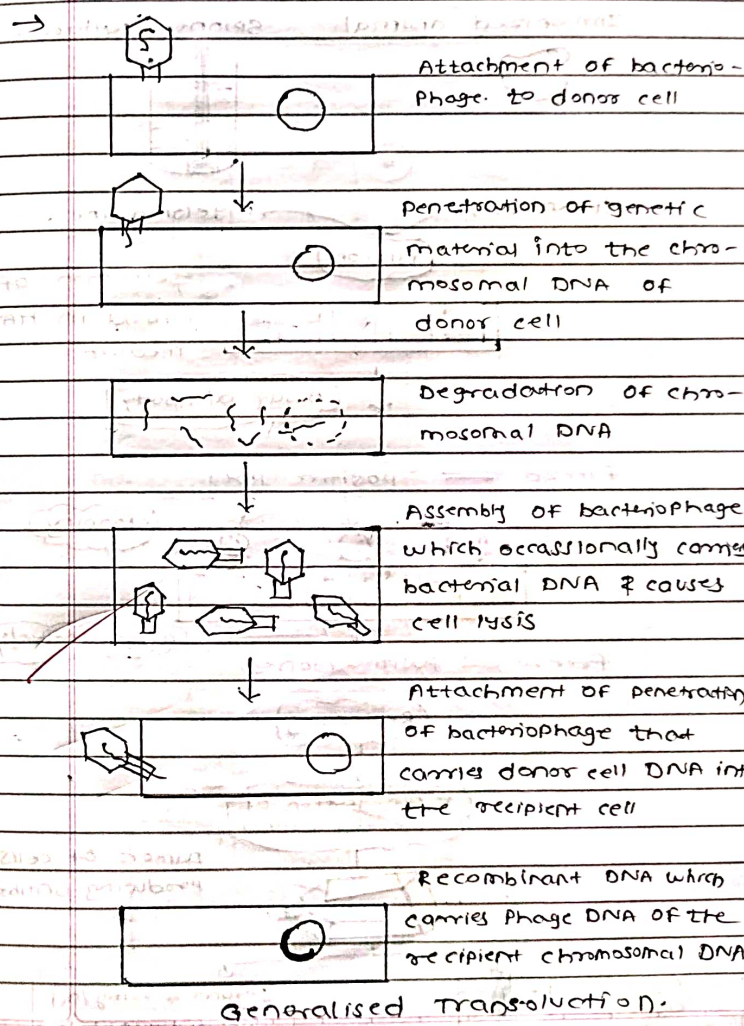 Attachment of bacterio-
Phage. to donor cell
penetration of genetic
material into the chro-
mosomal DNA of
donor cell
Degradation of chro-
mosomal DNA
Assembly of bacteriophage
which occassionally carries
bacterial DNA & causes
cell lysis
Attachment of penetration
of bacteriophage that
carries donor cell DNA int
the recipient cell
Recombinant DNA which
carries Phage DNA of the
recipient chromosomal DNA
Generalised Transduction.